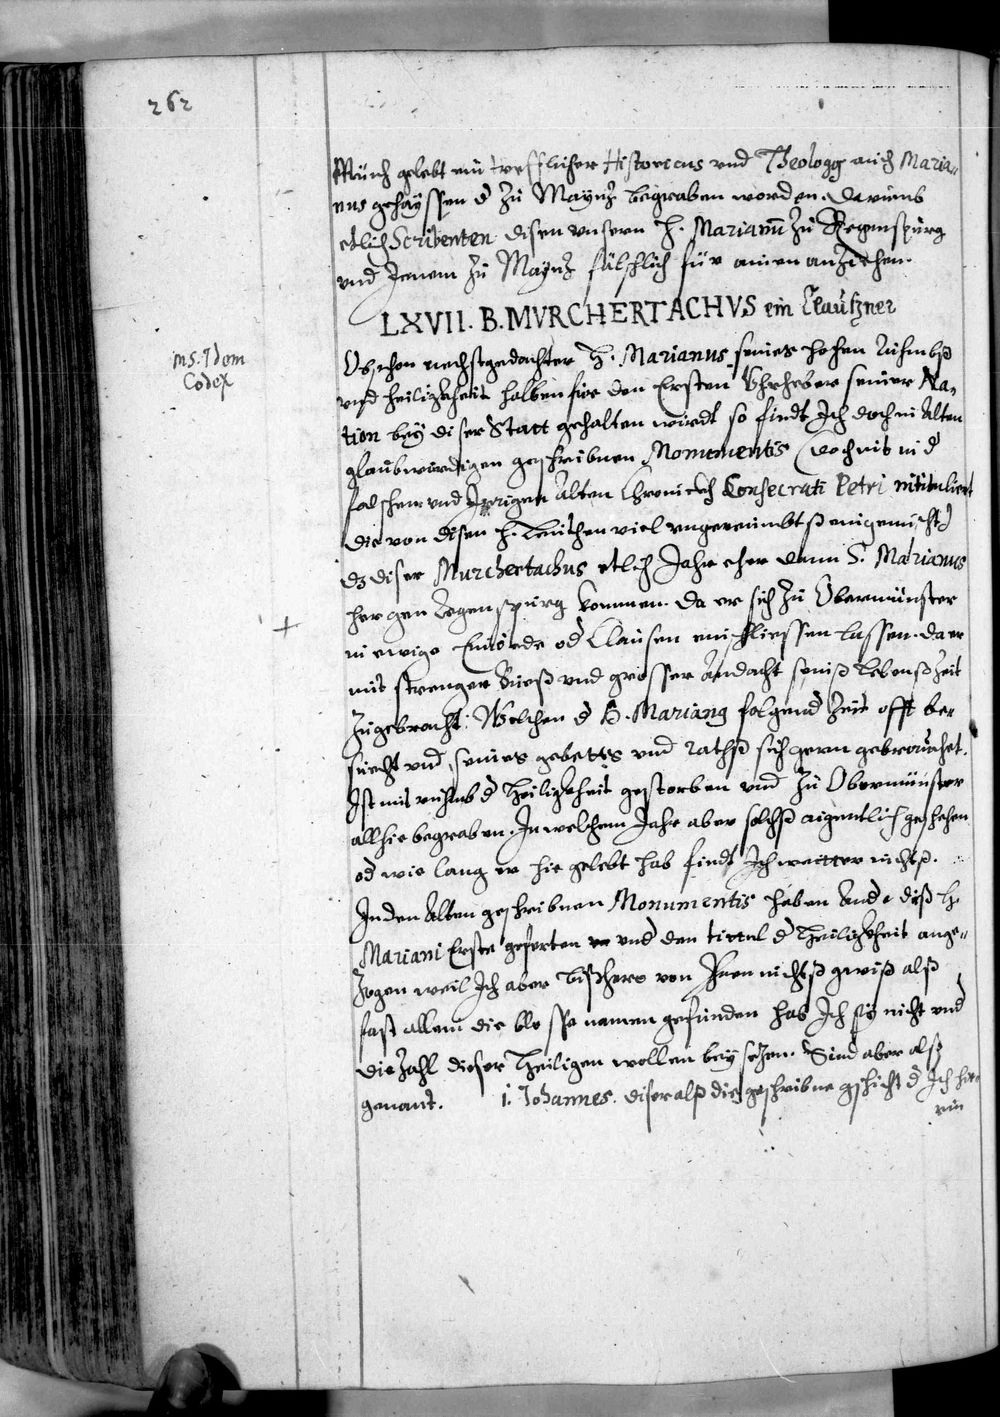 262
Münch gelebt ein trefflicher Historicus vnd Theologg auch Maria-
nus gehayssen d zu Maynz begraben worden. Darumb
etlich Scribenten disen vnsern H. Marianu zu Regenspurg
vnd Jenem zu Maynz fälschlich für ainen anziehen.
LXVII. B. MVRCHERTACHVS ein Clausner
ms. Idem
Codex
Ob schon nechstgedachter H. Marianus seines hohen Ruhmbß
vnd Heiligkheit halben für den Ersten Vhrheber seiner Na-
tion bey diser Statt gehalten wirdt so findt Ich doch in Alten
glaubwürdigen geschribnen Monumentis (doch nit in d
falschen vnd Irrigen Alten Chronickh Consecrati Petri intituliert
die von disen H. Leuthen viel vngereimbtß eingemischt)
dz diser Murchertachus etlich Jahr eher dann S. Marianus
her gen Regenspurg kommen. Da er sich zu Obermünster
in ewige Einöde od Clausen einschliessen lassen. da er
mit strenger Bueß vnd grosser Andacht seiniß Lebenß Zeit
zugebracht: Welchen d H. Mariang folgend Zeit offt be-
sucht vnd seines gebetts vnd rathß sich gern gebrauchet.
Ist mit ruhmb d Heiligkheit gestorben vnd zu Obermünster
allhie begraben. In welchem Jahr aber solchß aigentlich geschehen
od wie lang er hie gelebt hab findt Ich weitter nichtß.
In den Alten geschribnen Monumentis haben Ande diß H.
Mariani Erste geferten vnd den tittul d Heiligkheit ange-
zogen weil Ich aber bißhero von Ihnen nichtß gwiß alß
fast allein die blosse namen gefunden hab Ich sie nicht vnd
die Zahl dieser Heiligen wollen bey sezen. Sind aber alß
genant. 1. Johannes. diser alß die geschribne gschicht d Ich hie-